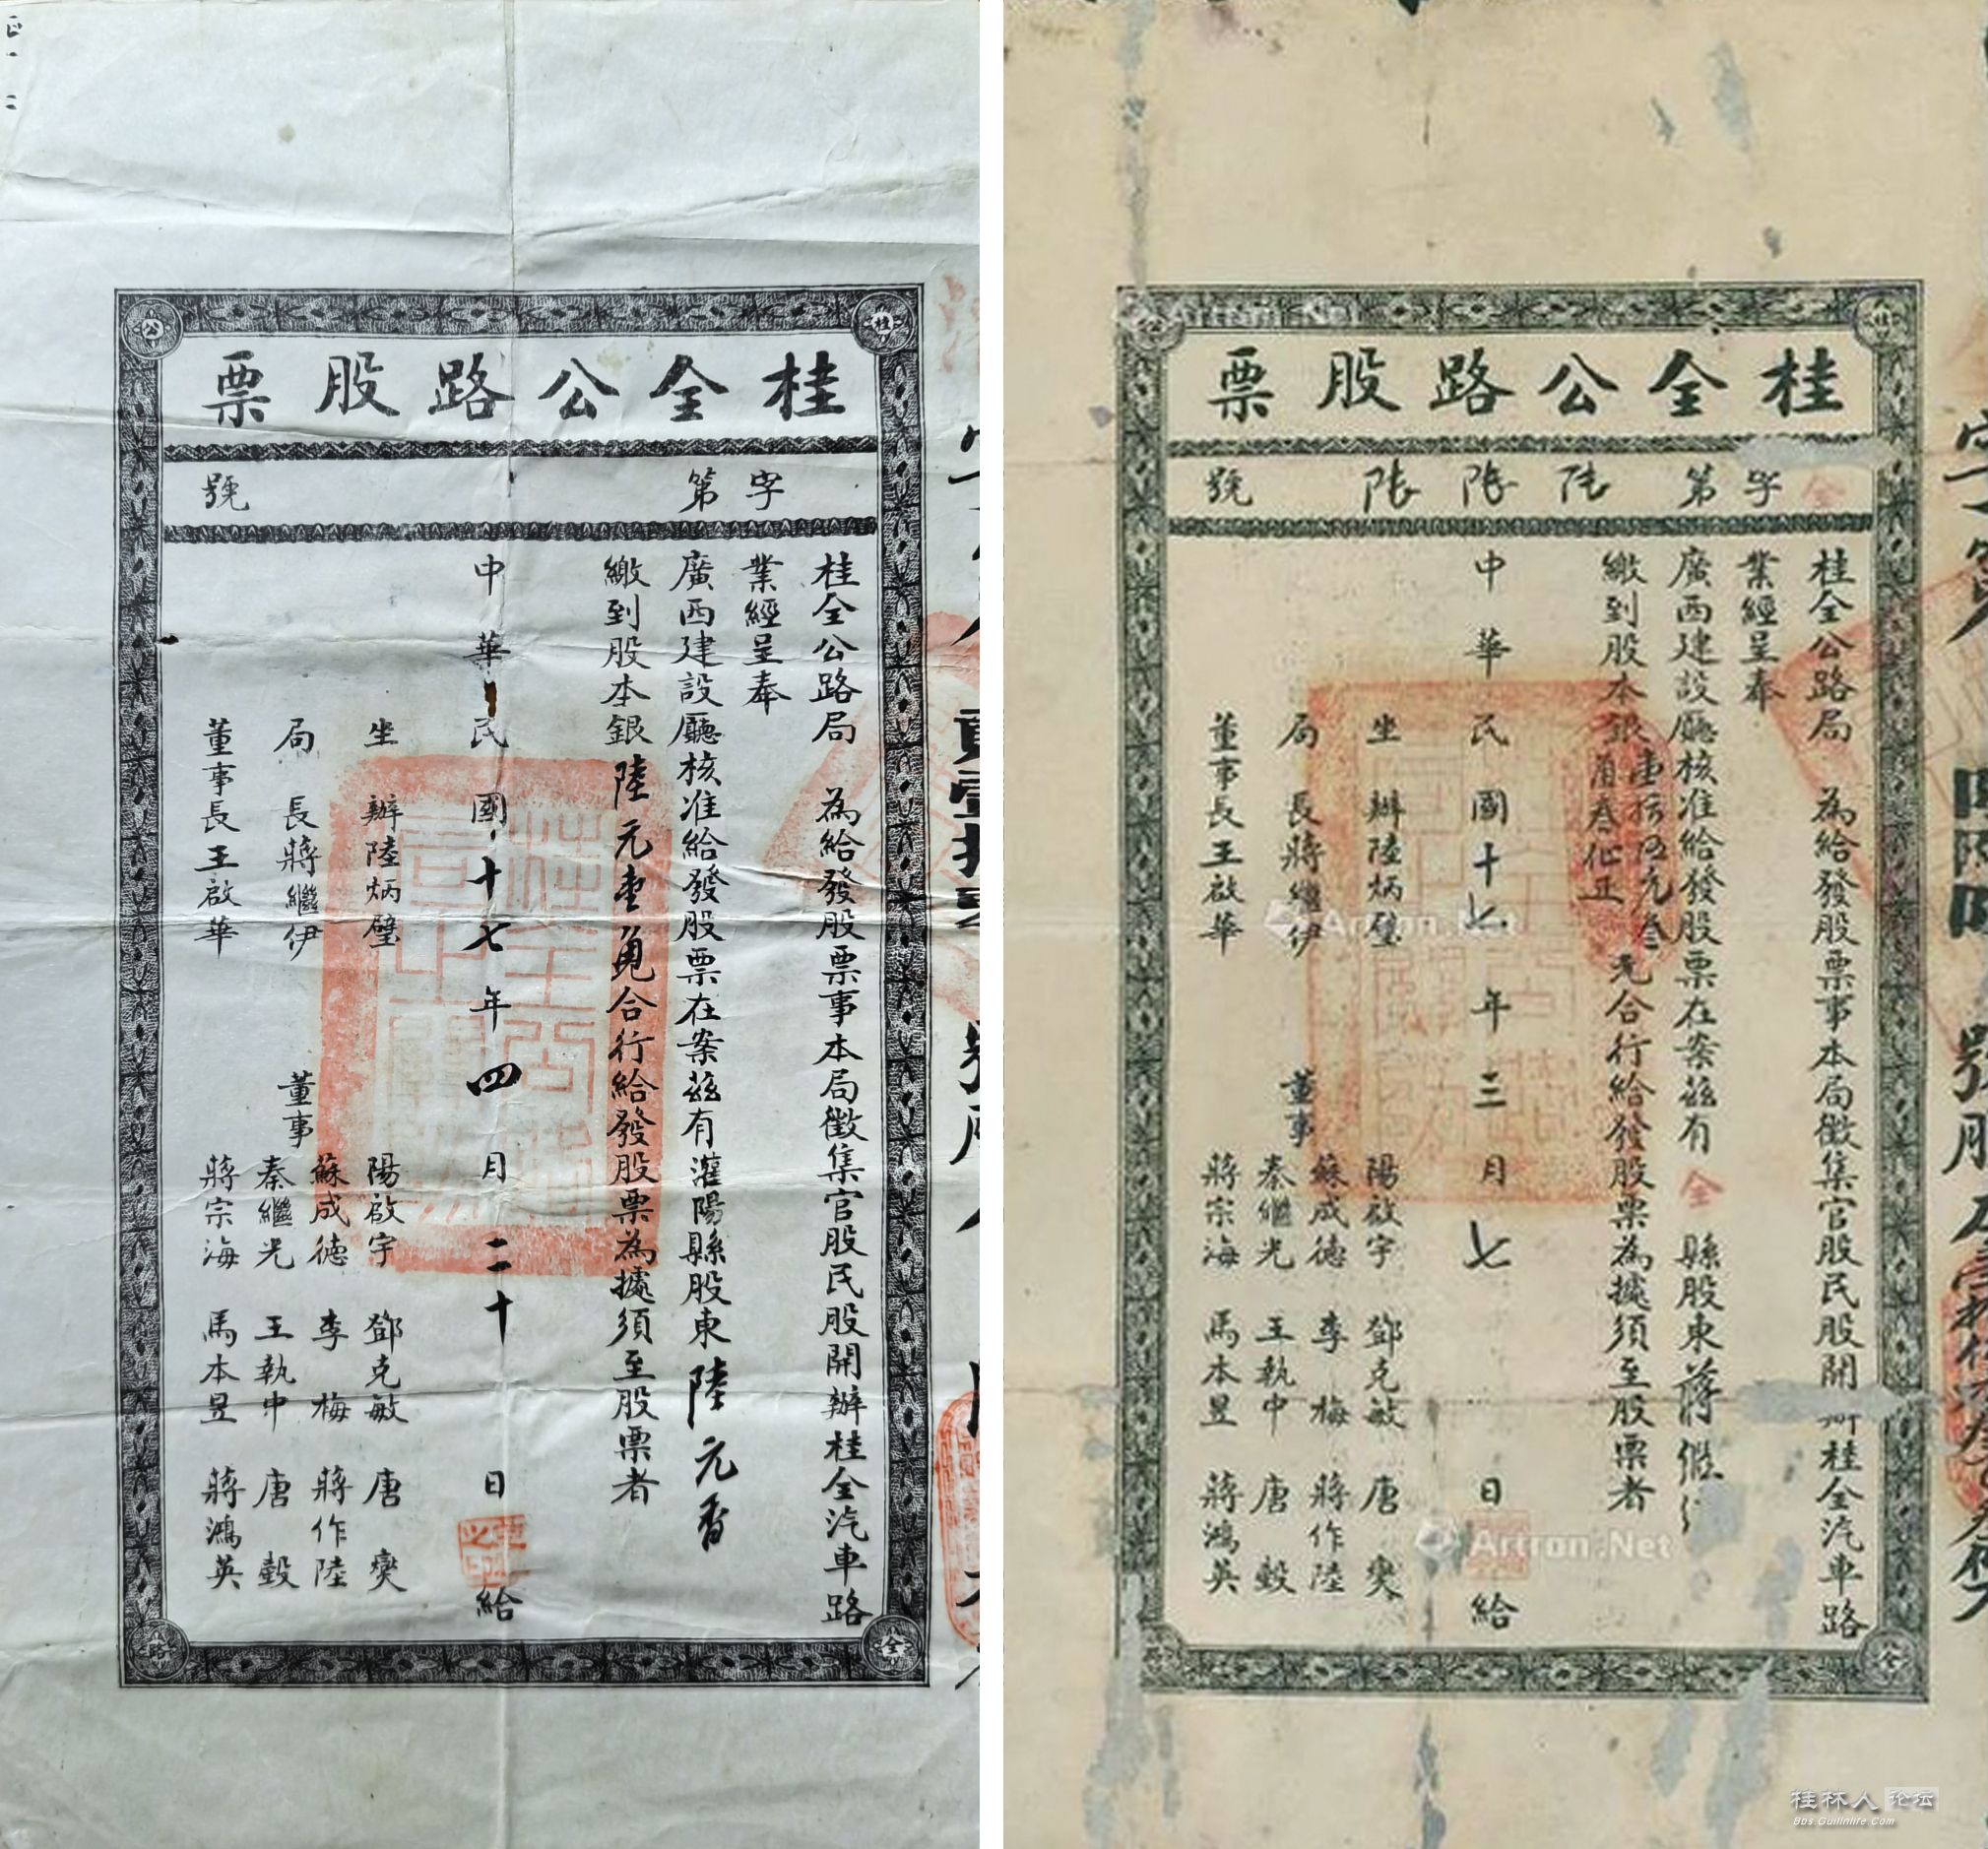 桂全公路股票
字 第 號
桂全公路局 為給發股票事本局徵集官股民股開辦桂全汽車路
業經呈奉
廣西建設廳核准給發股票在案茲有灌陽縣股東陸元香
繳到股本銀陸元壹角合行給發股票為據須至股票者
中華民國十七年四月二十日給
坐辦陸炳璧
局長蔣繼伊
董事長王啟華
董事
陽啟宇 鄧克敏 唐爕
蘇成德 李梅 蔣作陸
秦繼光 王執中 唐毅
蔣宗海 馬本昱 蔣鴻英
公
桂
路
全
桂全公路股票
全字第 號
桂全公路局 為給發股票事本局徵集官股民股開 桂全汽車路
業經呈奉
廣西建設廳核准給發股票在案茲有全縣股東蔣
繳到股本銀壹拾伍元叁角叁仙正 元合行給發股票為據須至股票者
中華民國十七年三月七日給
坐辦陸炳璧
局長蔣繼伊
董事長王啟華
董事
陽啟宇 鄧克敏 唐爕
蘇成德 李梅 蔣作陸
秦繼光 王執中 唐毅
蔣宗海 馬本昱 蔣鴻英
全
Artron.Net
Artron.Net
Artron.Net
桂林人论坛
Bbs.Guilinlife.Com